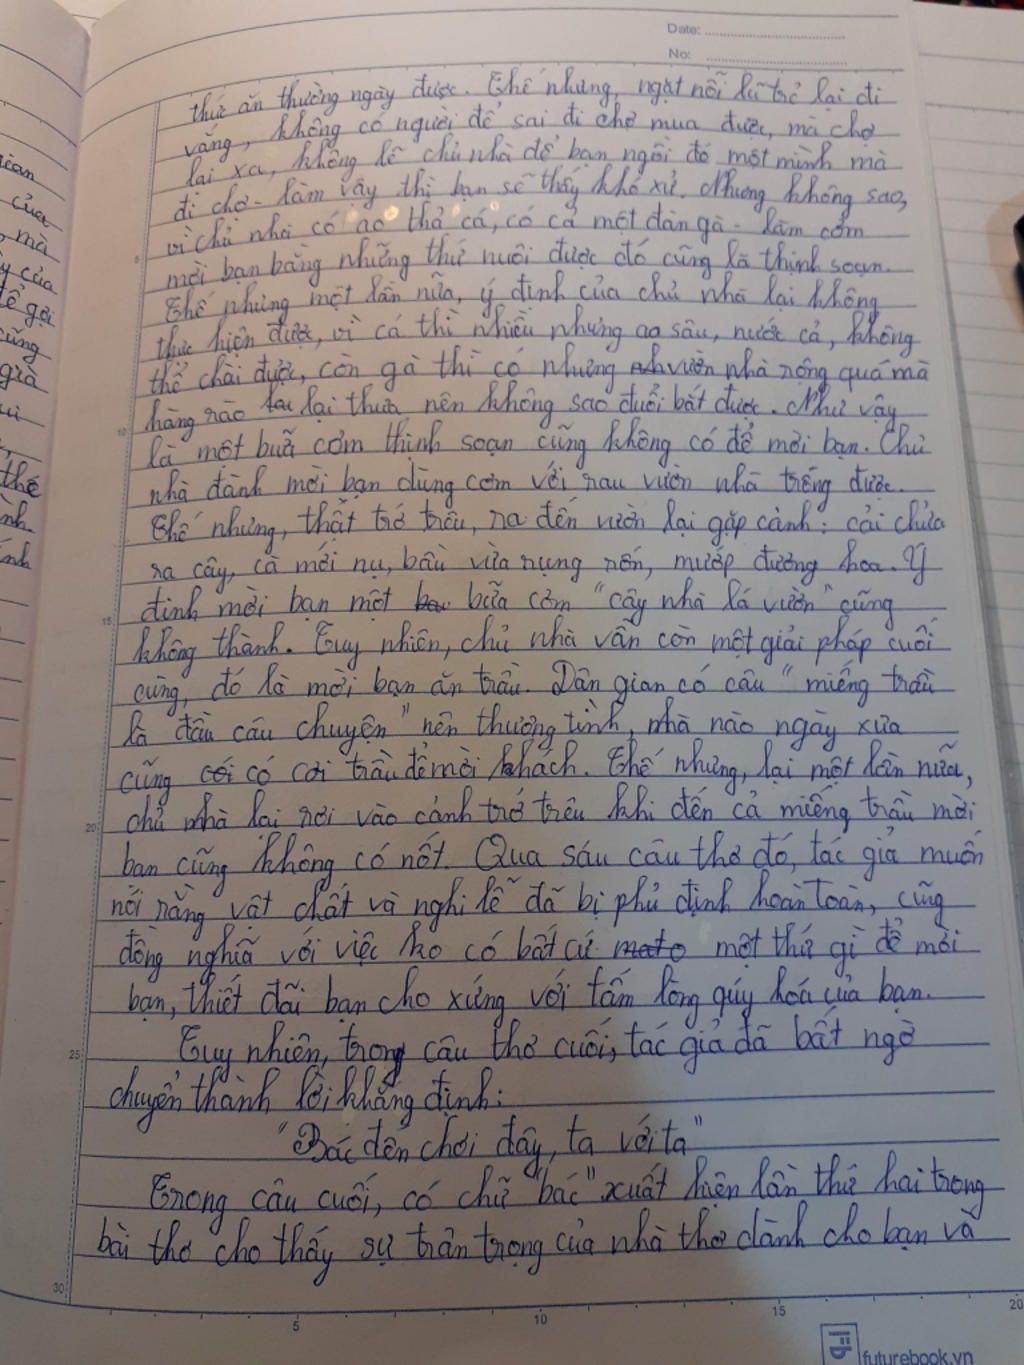 Date:
No:
thức ăn thường ngày được. Thế nhưng, ngặt nỗi lũ trẻ lại đi
vắng, không có người để sai đi chợ mua được, mà chợ
lại xa, không lẽ chủ nhà để bạn ngồi đó một mình mà
đi chợ - làm vậy thì bạn sẽ thấy khó xử. Nhưng không sao,
vì chủ nhà có ao thả cá, có cả một đàn gà - làm cơm
mời bạn bằng những thứ nuôi được đó cũng là thịnh soạn.
Thế nhưng một lần nữa, ý định của chủ nhà lại không
thực hiện được, vì cá thì nhiều nhưng ao sâu, nước cả, không
thể chài được, còn gà thì có nhưng vườn nhà rộng quá mà
hàng rào lại thưa nên không sao đuổi bắt được. Như vậy
là một buã cơm thịnh soạn cũng không có để mời bạn. Chủ
nhà đành mời bạn dùng cơm với rau vườn nhà trồng được.
Thế nhưng, thật trớ trêu, ra đến vườn lại gặp cảnh: cải chửa
ra cây, cà mới nụ, bầu vừa rụng rốn, mướp đương hoa. Ý
định mời bạn một bữa cơm "cây nhà lá vườn" cũng
không thành. Tuy nhiên, chủ nhà vẫn còn một giải pháp cuối
cùng, đó là mời bạn ăn trầu. Dân gian có câu "miếng trầu
là đầu câu chuyện" nên thường tình, nhà nào ngày xưa
cũng có cơi trầu để mời khách. Thế nhưng, lại một lần nữa,
chủ nhà lại rơi vào cảnh trớ trêu khi đến cả miếng trầu mời
bạn cũng không có nốt. Qua sáu câu thơ đó, tác giả muốn
nói rằng vật chất và nghi lễ đã bị phủ định hoàn toàn, cũng
đồng nghĩa với việc ko có bất cứ một thứ gì để mời
bạn, thiết đãi bạn cho xứng với tấm lòng qúy hoá của bạn.
Tuy nhiên, trong câu thơ cuối, tác giả đã bất ngờ
chuyển thành lời khẳng định:
"Bác đến chơi đây, ta với ta"
Trong câu cuối, có chữ "bác" xuất hiện lần thứ hai trong
bài thơ cho thấy sự trân trọng của nhà thơ dành cho bạn và
5
10
15
20
25
30
5
10
15
20
futurebook.vn
của
mà
của
gọi
cũng
già
thế